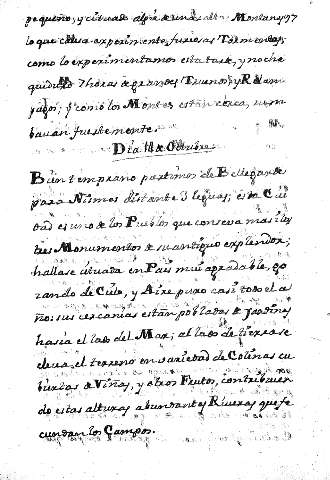 pequeño, y cituado alpie de unas altas Montanas,
lo que causa experimente furiosas Tormentas;
como lo experimentamos esta tarde, y noche
que duro 7 horas de grandes Truenos, y Relam
pagos; y como los Montes estan cerca, rum
bavan fuertemente.
Dia 14 de Octubre.
Bien temprano partimos de Bellegarde
para Nimes distante 3 leguas; esta Ciu
dad es uno de los Pueblos que conserva mas ilus
tres Monumentos de su antiguo explendor;
hallase cituada en Pais mui agradable, go
zando de Cielo, y Ayre puro casi todo el a
ño: sus cercanias estan pobladas de jardines
hasia el lado del Mar; al lado de tierra se
eleva el terreno en variedad de Colinas cu
biertas de Viñas, y otros Frutos, contribuien
do estas alturas abundantes Riveras que fe
cundan los Campos.